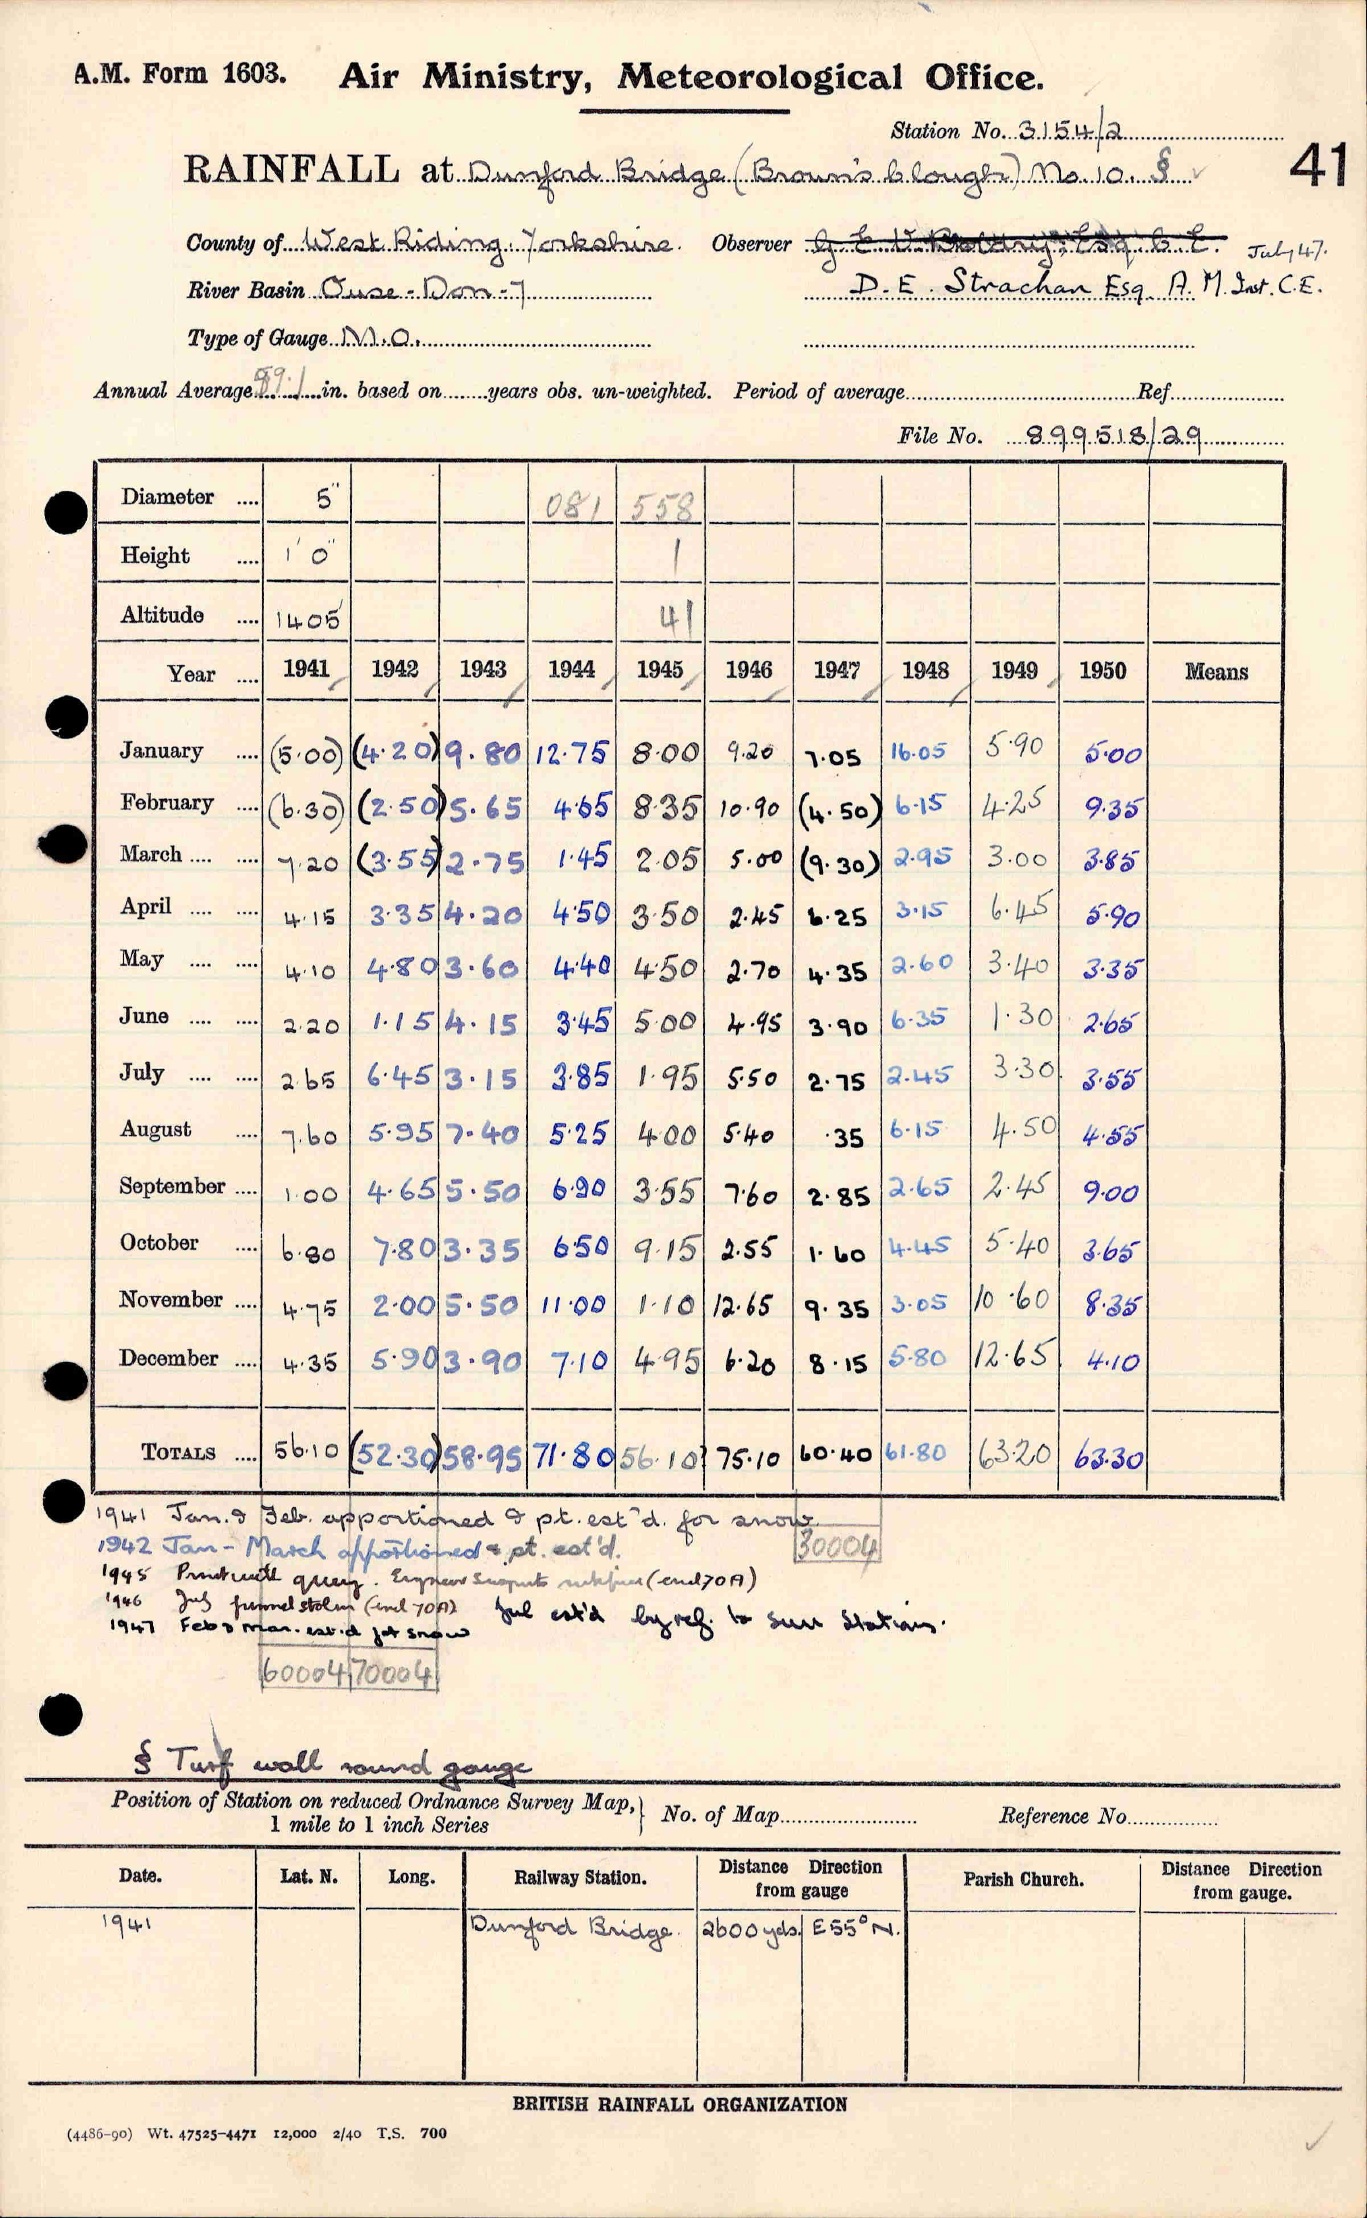 A.M. Form 1603. Air Ministry, Meteorological Office.
Station No. 3154/2
RAINFALL at Dunford Bridge (Brown's Clough) No. 10. §
41
County of West Riding, Yorkshire. Observer G E V Esq. C. E. July 47.
River Basin Ouse - Don - 7 D. E. Strachan Esq. A. M. Inst. C.E.
Type of Gauge M.O.
Annual Average 59.1 in. based on years obs. un-weighted. Period of average Ref.
File No. 899518/29
Diameter 5" 081 558
Height 1' 0" 1
Altitude 1405' 41
Year 1941 1942 1943 1944 1945 1946 1947 1948 1949 1950 Means
January (5.00) (4.20) 9.80 12.75 8.00 9.20 7.05 16.05 5.90 5.00
February (6.30) (2.50) 5.65 4.65 8.35 10.90 (4.50) 6.15 4.25 9.35
March 7.20 (3.55) 2.75 1.45 2.05 5.00 (9.30) 2.95 3.00 3.85
April 4.15 3.35 4.20 4.50 3.50 2.45 6.25 3.15 6.45 5.90
May 4.10 4.80 3.60 4.40 4.50 2.70 4.35 2.60 3.40 3.35
June 2.20 1.15 4.15 3.45 5.00 4.95 3.90 6.35 1.30 2.65
July 2.65 6.45 3.15 3.85 1.95 5.50 2.75 2.45 3.30 3.55
August 7.60 5.95 7.40 5.25 4.00 5.40 .35 6.15 4.50 4.55
September 1.00 4.65 5.50 6.90 3.55 7.60 2.85 2.65 2.45 9.00
October 6.80 7.80 3.35 6.50 9.15 2.55 1.60 4.45 5.40 3.65
November 4.75 2.00 5.50 11.00 1.10 12.65 9.35 3.05 10.60 8.35
December 4.35 5.90 3.90 7.10 4.95 6.20 8.15 5.80 12.65 4.10
TOTALS 56.10 (52.30) 58.95 71.80 56.10? 75.10 60.40 61.80 63.20 63.30
1941 Jan. & Feb. apportioned & pt. est'd. for snow
30004
1942 Jan - March apportioned & pt. est'd.
1945 Print with query. Engineer suspects (encl 70A)
1946 July funnel stolen (encl 70A) Jul est'd by ref. to surr stations.
1947 Feb & Mar. est'd for snow
60004 70004
§ Turf wall round gauge
Position of Station on reduced Ordnance Survey Map, 1 mile to 1 inch Series } No. of Map Reference No.
Date. Lat. N. Long. Railway Station. Distance Direction from gauge Parish Church. Distance Direction from gauge.
1941 Dunford Bridge. 2600 yds. E55°N.
BRITISH RAINFALL ORGANIZATION
(4486-90) Wt. 47525-4471 12,000 2/40 T.S. 700